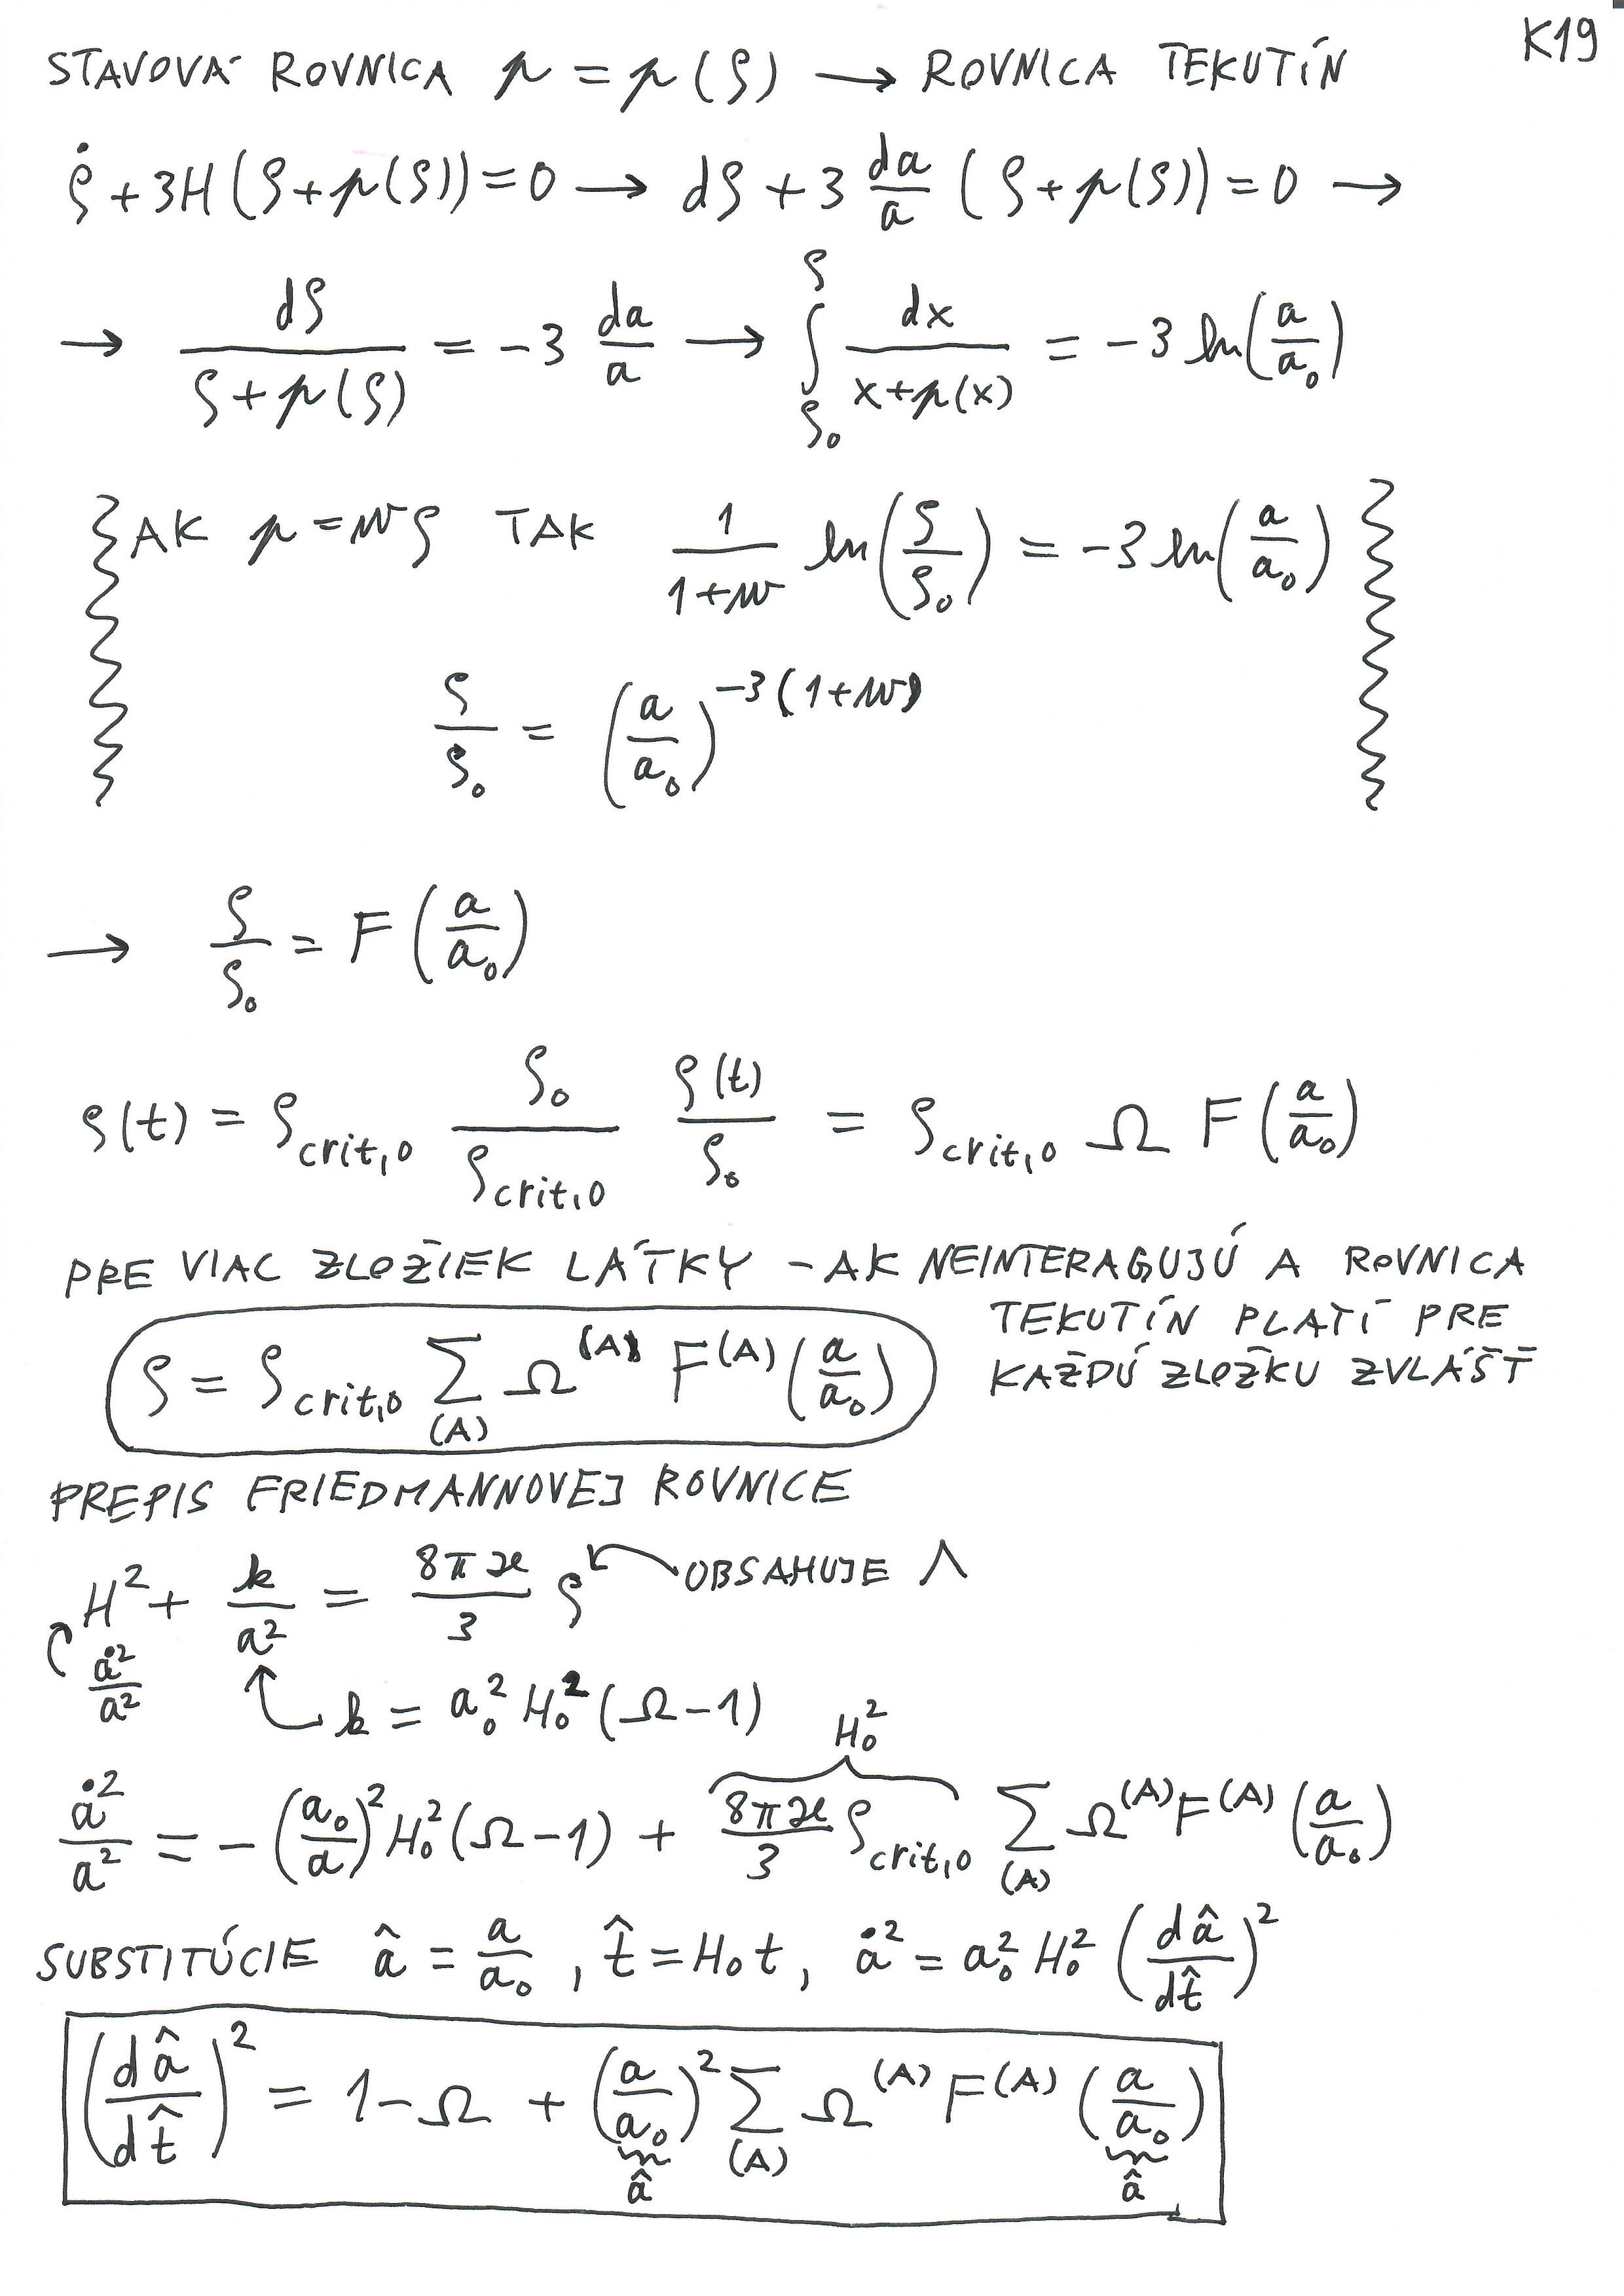 K19
STAVOVÁ ROVNICA p = p(ρ) → ROVNICA TEKUTÍN
ρ̇ + 3H(ρ + p(ρ)) = 0 → dρ + 3 da/a (ρ + p(ρ)) = 0 →
→ dρ/(ρ + p(ρ)) = -3 da/a → ∫_{ρ₀}^{ρ} dx/(x + p(x)) = -3 ln(a/a₀)
AK p = wρ TAK 1/(1+w) ln(ρ/ρ₀) = -3 ln(a/a₀)
ρ/ρ₀ = (a/a₀)^{-3(1+w)}
→ ρ/ρ₀ = F(a/a₀)
ρ(t) = ρ_{crit,0} ρ₀/ρ_{crit,0} ρ(t)/ρ₀ = ρ_{crit,0} Ω F(a/a₀)
PRE VIAC ZLOŽIEK LÁTKY - AK NEINTERAGUJÚ A ROVNICA
TEKUTÍN PLATÍ PRE
KAŽDÚ ZLOŽKU ZVLÁŠŤ
ρ = ρ_{crit,0} Σ_{(A)} Ω^{(A)} F^{(A)}(a/a₀)
PREPIS FRIEDMANNOVEJ ROVNICE
H² + k/a² = 8πϰ/3 ρ OBSAHUJE Λ
ȧ²/a²
k = a₀² H₀² (Ω - 1)
H₀²
ȧ²/a² = -(a₀/a)² H₀² (Ω - 1) + 8πϰ/3 ρ_{crit,0} Σ_{(A)} Ω^{(A)} F^{(A)}(a/a₀)
SUBSTITÚCIE â = a/a₀, t̂ = H₀t, ȧ² = a₀² H₀² (dâ/dt̂)²
(dâ/dt̂)² = 1 - Ω + (a/a₀)² Σ_{(A)} Ω^{(A)} F^{(A)}(a/a₀)
â â